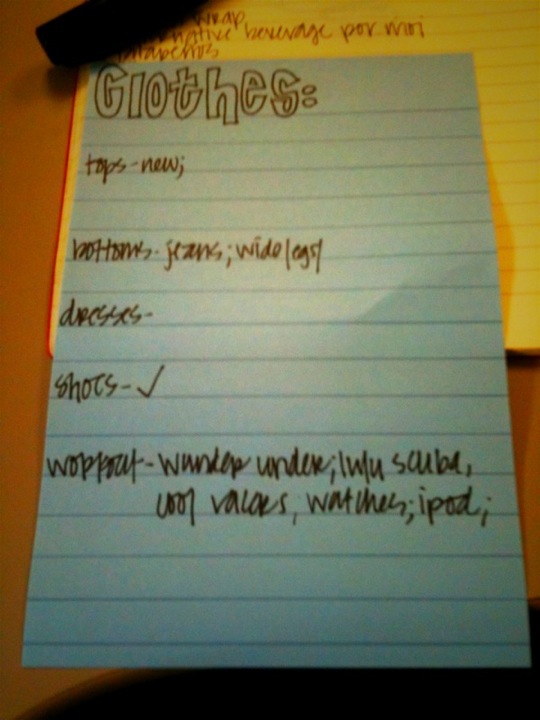 wrap
native beverage por moi
jalapeños
Clothes:
tops-new;
bottoms-jeans; wide legs/
dresses-
shoes-✓
workout-wunder under; lulu scuba,
cool racers, watches; ipod;